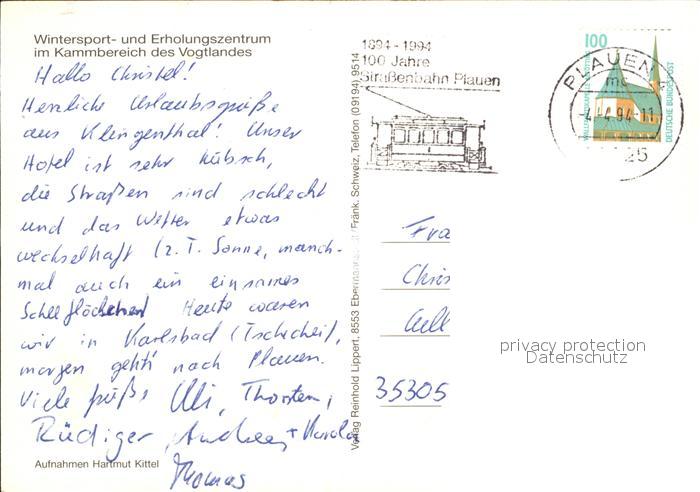 Wintersport- und Erholungszentrum
im Kammbereich des Vogtlandes
Hallo Christel!
Herzliche Urlaubsgrüße
aus Klingenthal! Unser
Hotel ist sehr hübsch,
die Straßen sind schlecht
und das Wetter etwas
wechselhaft (z. T. Sonne, manch-
mal auch ein einsames
Scheeflöckchen) Heute waren
wir in Karlsbad (Tschechei),
morgen geht's nach Plauen.
Viele Grüße Uli, Thorsten,
Rüdiger, Andreas + Karola
Thomas
Aufnahmen Hartmut Kittel
Verlag Reinhold Lippert, 8553 Ebermannstadt/Fränk. Schweiz, Telefon (09194) 9514
1894-1994
100 Jahre
Straßenbahn Plauen
100
DEUTSCHE BUNDESPOST
PLAUEN
-4.-4.94-11
Fra
Chris
35305
privacy protection
Datenschutz